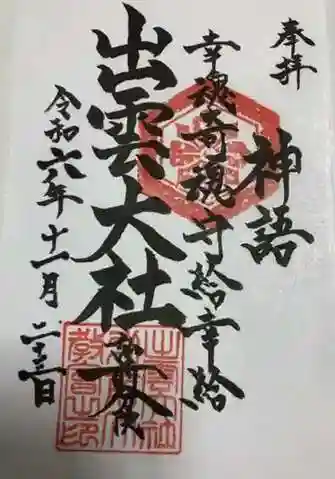 奉拝
神語
幸魂奇魂守給幸給
出雲大社
令和六年十一月二十三日